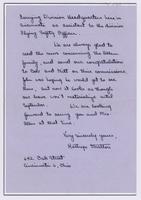 Division Headquarters here in
Cincinnati as assistant to the division
Flying Safety Officer.
We are always glad to
read the news concerning the Allen
family, and send our congratulations
to Bob and Bill on their commissions.
John was hoping he would get to see
them, but now it looks as though
our leave won't materialize until
September. We are looking
forward to seeing you and Mrs.
Allen at that time.
Very sincerely yours,
Kathryn
642 Oak Street
Cincinnati 6, Ohio